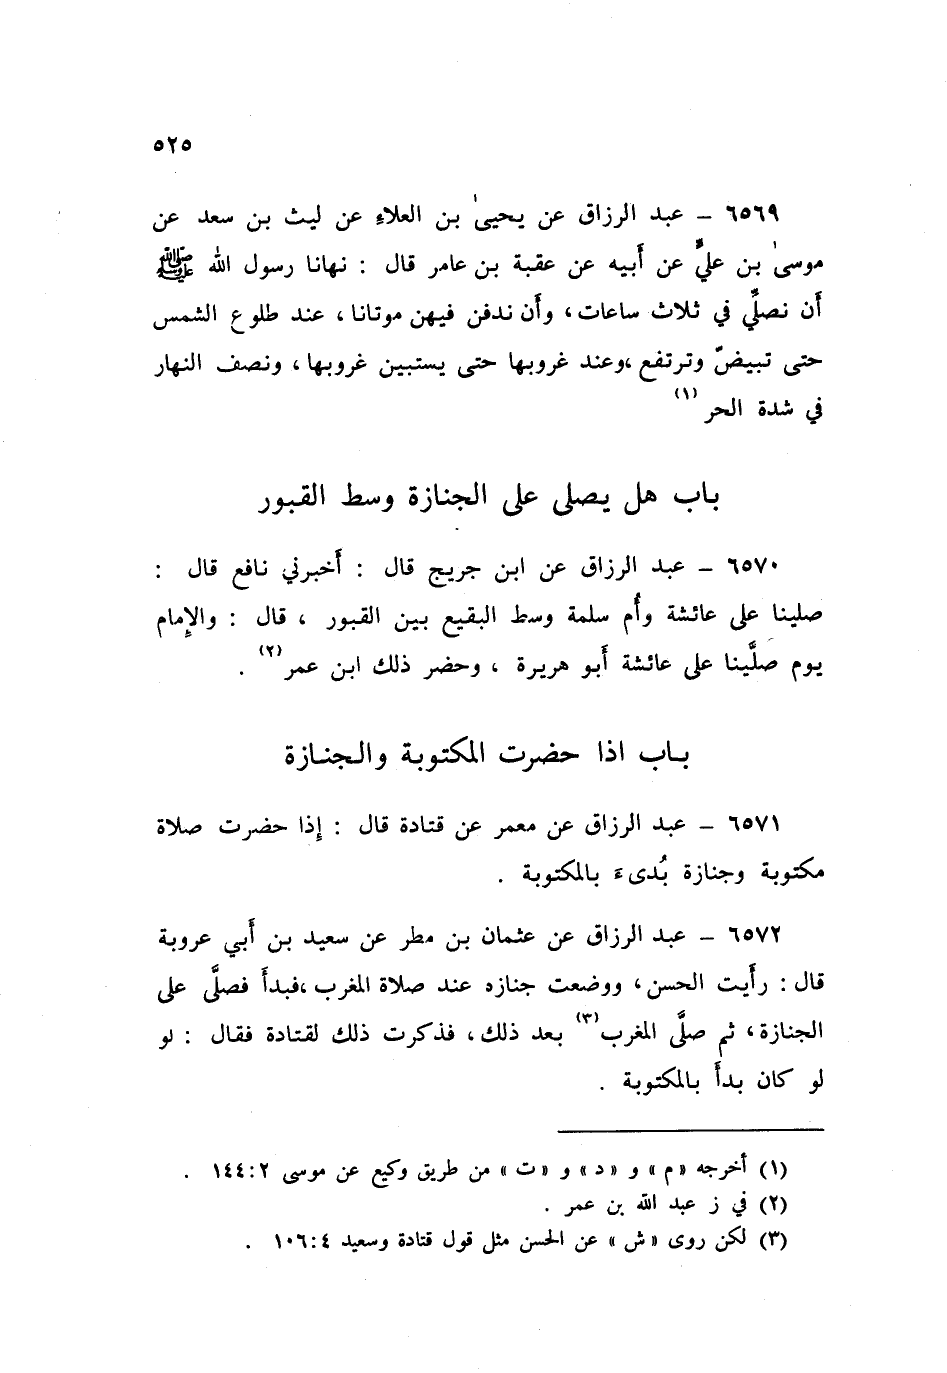 ٥٢٥
٦٥٦٩ – عبد الرزاق عن يحيىٰ بن العلاءِ عن ليث بن سعد عن
موسىٰ بن عليٍّ عن أَبيه عن عقبة بن عامر قال : نهانا رسول الله ﷺ
أَن نصلِّي في ثلاث ساعات، وأَن ندفن فيهن موتانا، عند طلوع الشمس
حتى تبيضّ وترتفع ،وعند غروبها حتى يستبين غروبها، ونصف النهار
في شدة الحر (١)
باب هل يصلى على الجنازة وسط القبور
٦٥٧٠ – عبد الرزاق عن ابن جريج قال : أَخبرني نافع قال :
صلينا على عائشة وأُم سلمة وسط البقيع بين القبور ، قال : والإِمام
يوم صَلَّينا على عائشة أَبو هريرة ، وحضر ذلك ابن عمر(٢) .
باب اذا حضرت المكتوبة والجنازة
٦٥٧١ – عبد الرزاق عن معمر عن قتادة قال : إِذا حضرت صلاة
مكتوبة وجنازة بُدىءَ بالمكتوبة .
٦٥٧٢ – عبد الرزاق عن عثمان بن مطر عن سعيد بن أَبي عروبة
قال : رأَيت الحسن، ووضعت جنازه عند صلاة المغرب ،فبدأَ فصلَّى على
الجنازة، ثم صلَّى المغرب(٣) بعد ذلك، فذكرت ذلك لقتادة فقال : لو
لو كان بدأَ بالمكتوبة .
(١) أخرجه «م» و «د» و «ت» من طريق وكيع عن موسى ٢:‏١٤٤ .
(٢) في ز عبد الله بن عمر .
(٣) لكن روى «ش» عن الحسن مثل قول قتادة وسعيد ٤:‏١٠٦ .